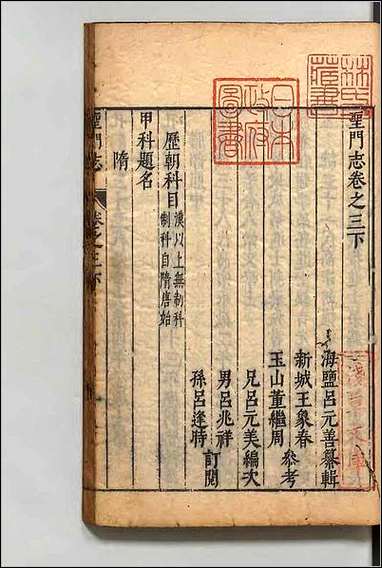 聖門志卷之三下
海鹽呂元善纂輯
新城王象春
玉山董繼周
參考
兄呂元美編次
男呂兆祥
孫呂逢時
訂閱
歷朝科目
漢以上無制科
制科自隋唐始
甲科題名
隋
聖門志
卷之三下
日本
政府
圖書
林氏
藏書
淺草文庫